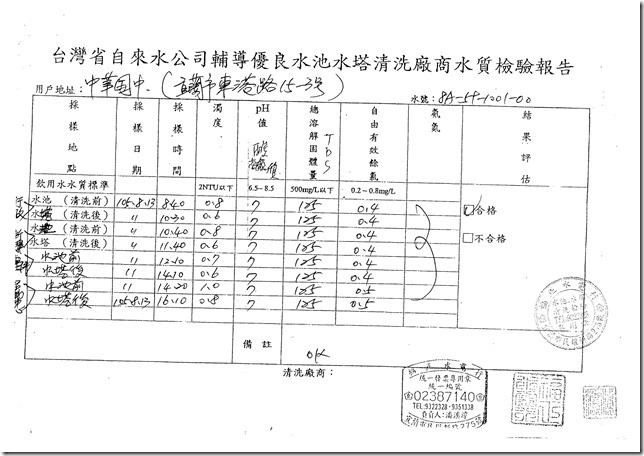 台灣省自來水公司輔導優良水池水塔清洗廠商水質檢驗報告
用戶地址：中華國中．(宜蘭市東港路15-3號) 水號：8A-59-1001-00
採樣地點 採樣日期 採樣時間 濁度 pH值 總溶解固體量 TDS 自由有效餘氯 氨氮 結果評估
飲用水水質標準 2NTU以下 6.5~8.5 500mg/L以下 0.2~0.8mg/L
水池（清洗前） 105.8.13 8.40 0.8 7 125 0.4 合格
水塔（清洗後） 〃 10.30 0.6 7 125 0.4
水池（清洗前） 〃 10.40 0.8 7 125 0.4 不合格
水塔（清洗後） 〃 11.40 0.6 7 125 0.4
水池前 〃 12.10 0.7 7 125 0.4
水塔後 〃 14.10 0.6 7 125 0.4
水池前 〃 14.20 1.0 7 125 0.5
水塔後 105.8.13 16.10 0.8 7 125 0.5
備註 OK
清洗廠商：
統一發票專用章
統一編號
02387140
TEL:9322328・9351338